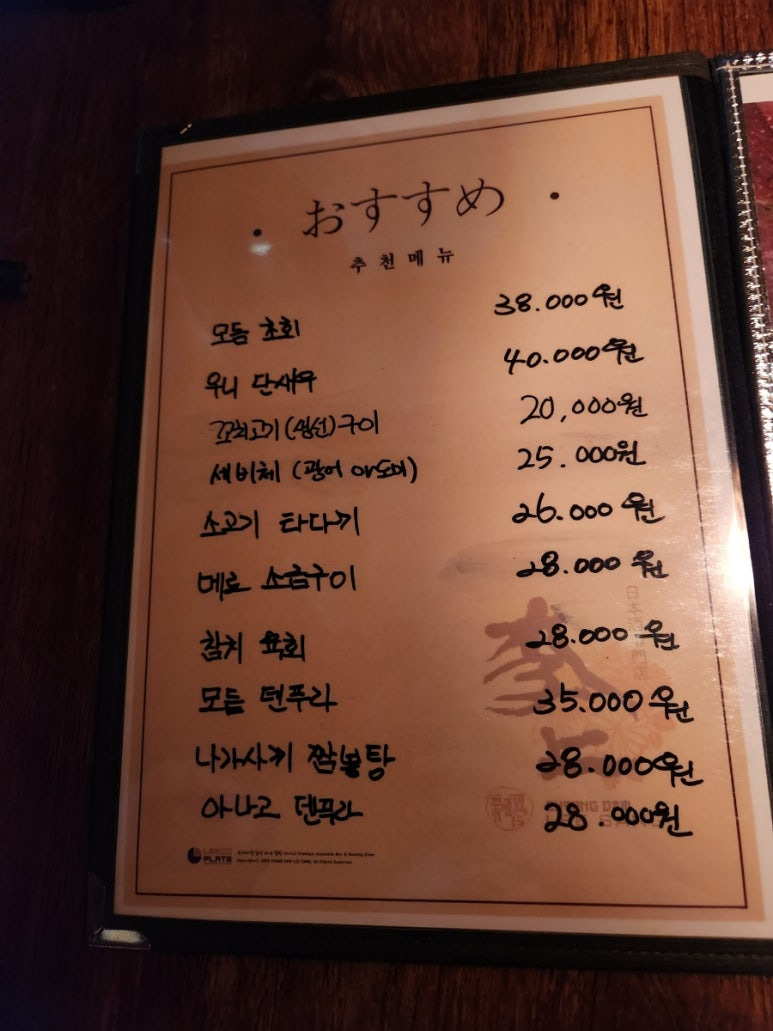 • おすすめ •
추천메뉴
모듬 초회 38.000원
우니 단새우 40.000원
꼬치고기(생선)구이 20,000원
세비체 (광어 or 도미) 25.000원
소고기 타다끼 26.000원
메로 소금구이 28.000원
참치 육회 28.000원
모듬 텐푸라 35.000원
나가사끼 짬뽕탕 28.000원
아나고 덴푸라 28.000원
LEECO
PLATE